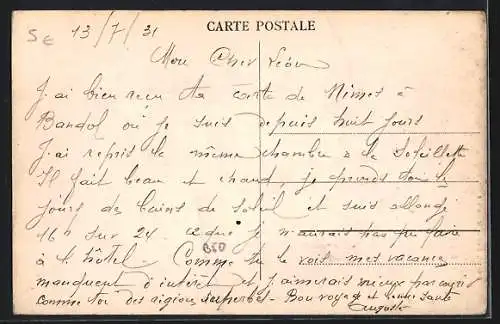 CARTE POSTALE
13/7/31
Mon Cher Léon
J'ai bien reçu ta carte de Nîmes à
Bandol où je suis depuis huit jours
J'ai repris la même chambre à la
Il fait beau et chaud, je prends tous les
jours des bains de soleil et suis allongé
16 h sur 24. ce que je n'aurais pas pu faire
à St. hôtel. Comme tu le vois mes vacances
manquent d'intérêt et j'aimerais mieux parcourir
comme toi des régions superbes - Bon voyage et bonne santé
Auguste